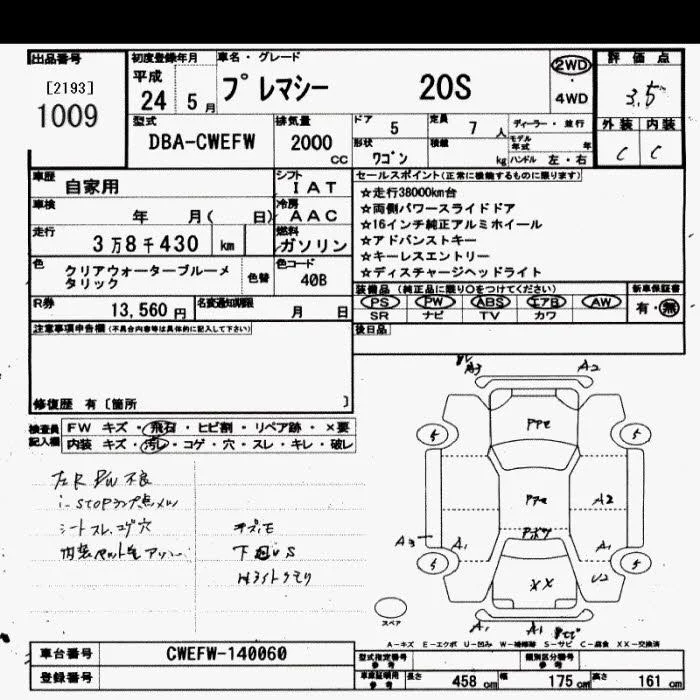 出品番号
[2193]
1009
初度登録年月
平成
24 5月
車名・グレード
プレマシー 20S
2WD
・
4WD
評価点
3.5
外装 内装
C C
型式
DBA-CWEFW
排気量
2000
cc
ドア
5
定員
7 人
形状
ワゴン
積載
kg
ディーラー・並行
モデル年式 年
ハンドル 左・右
車歴
自家用
シフト
IAT
車検
年 月( 日)
冷房
AAC
走行
3万8千430 km
燃料
ガソリン
色
クリアウォーターブルーメタリック
色替
色コード
40B
R券
13,560円
名変通知期限
月 日
セールスポイント(正常に機能するものに限ります)
☆走行38000km台
☆両側パワースライドドア
☆16インチ純正アルミホイール
☆アドバンストキー
☆キーレスエントリー
☆ディスチャージヘッドライト
装備品 (純正品に限り○をつけてください)
PS PW ABS エアB AW
SR ナビ TV カワ
新車保証書
有・無
後日品
注意事項申告欄(不具合内容等は具体的に記入して下さい)
修復歴 有〔箇所 〕
検査員記入欄
FW キズ・飛石・ヒビ割・リペア跡・×要
内装 キズ・汚レ・コゲ・穴・スレ・キレ・破レ
左R P/W 不良
i-STOPランプ点メツ
シートスレ、コゲ穴
キズ,モ
下廻りS
Hライトクモリ
A3
A2
PPe
5
5
PPe
A2
A3
A1
A1
5
5
U2
XX
A1
A1
スペア
A-キズ E-エクボ U-凹み W-補修跡 S-サビ C-腐食 XX-交換済
車台番号
CWEFW-140060
登録番号
型式指定番号
参考
類別区分番号
参考
車庫証明用
参考
長さ 458 cm
幅 175 cm
高さ 161 cm